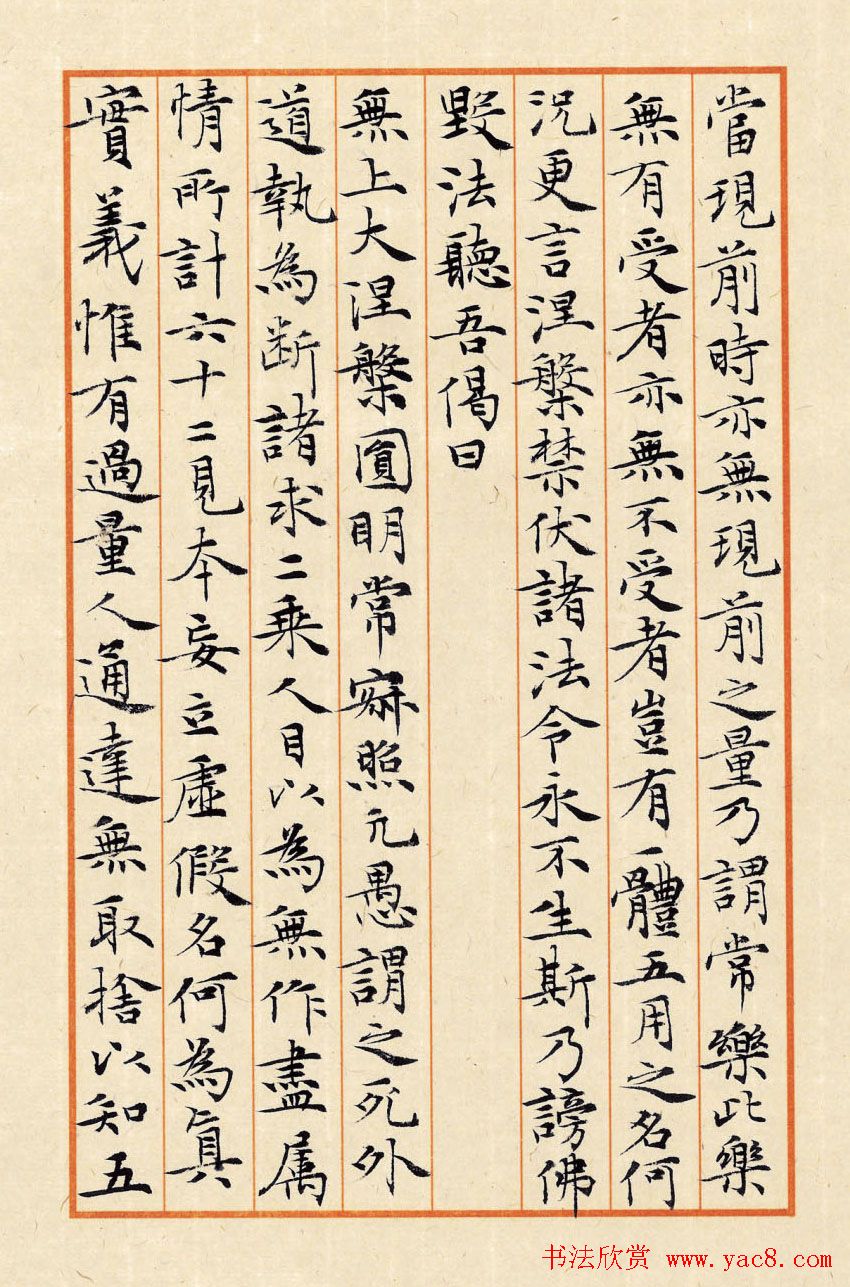 當現前時亦無現前之量乃謂常樂此樂
無有受者亦無不受者豈有一體五用之名何
況更言涅槃禁伏諸法令永不生斯乃謗佛
毀法聽吾偈曰
無上大涅槃圓明常寂照凡愚謂之死外
道執為斷諸求二乘人目以為無作盡属
情所計六十二見本妄立虛假名何為真
實義惟有過量人通達無取捨以知五
书法欣赏 www.yac8.com